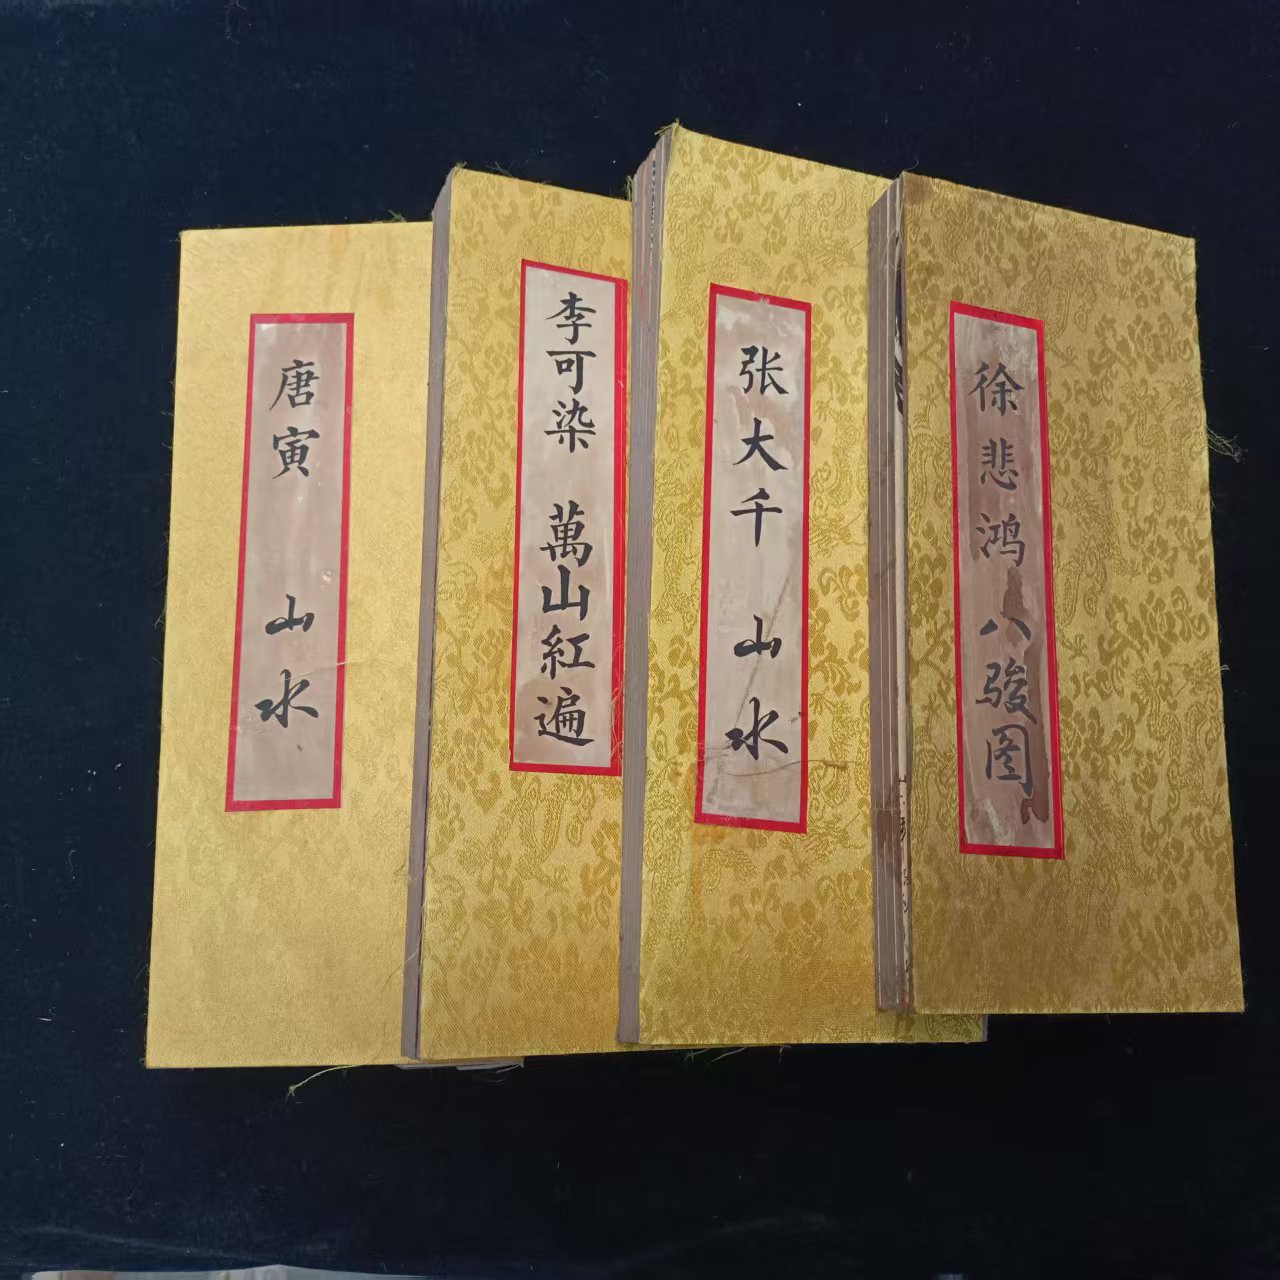 唐寅 山水
李可染 萬山紅遍
张大千 山水
徐悲鸿八骏图